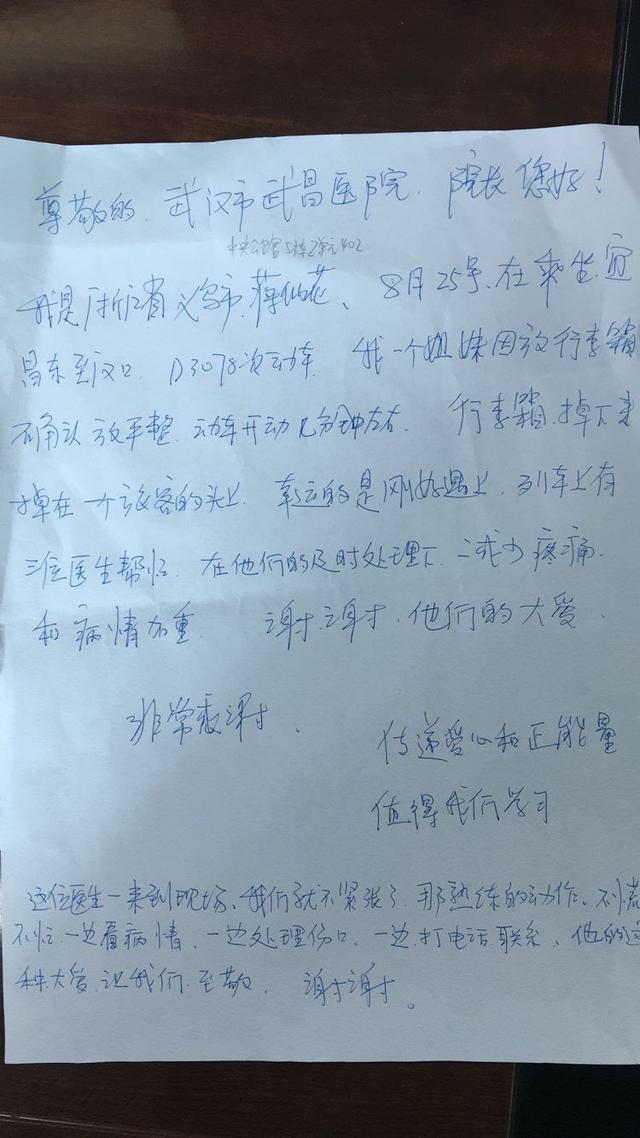 尊敬的、武汉市武昌医院、院长您好！
我是浙江省义乌市、蒋仙花、8月25号、在乘坐宜
昌东至汉口、D3078次动车、我一个姐妹因放行李箱
不确认放平整、动车开动几分钟左右、行李箱、掉下来
掉在一个旅客的头上、幸运的是刚好遇上、列车上有
三位医生帮忙、在他们的及时处理下、减少疼痛、
和病情加重、谢谢、他们的大爱、
非常感谢、
传递爱心和正能量
值得我们学习
这位医生一来到现场、我们就不紧张了、那熟练的动作、不慌
不忙、一边看病情、一边处理伤口、一边、打电话、联系、他的这
种大爱、让我们、至敬、谢谢。